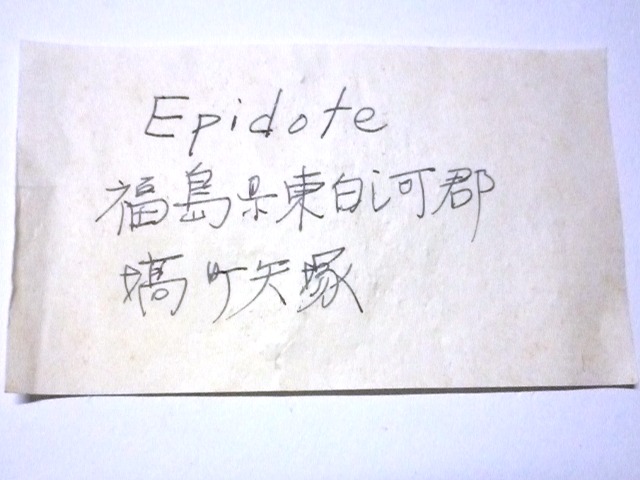 Epidote
福島県東白河郡
塙町矢塚